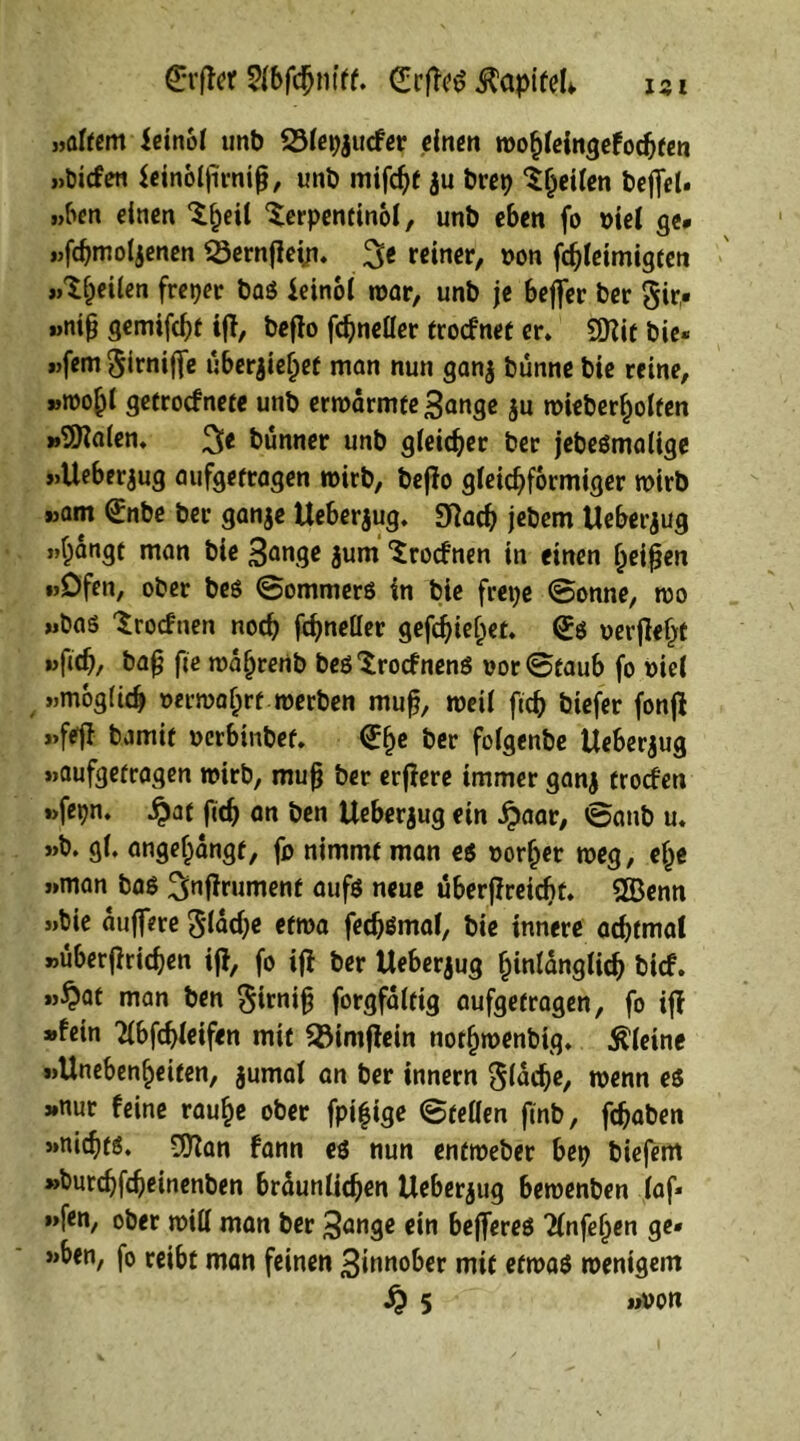 Erster Abschnitt. Erstes Kapitel. 121
„altem Leinöl und Bleyzucker einen wohleingekochten
„dicken Leinölfirniß, und mischt zu drey Theilen dessel-
„ben einen Theil Terpentinöl, und eben so viel ge-
„schmolzenen Bernstein. Je reiner, von schleimigten
„Theilen freyer das Leinöl war, und je besser der Fir-
„niß gemischt ist, desto schneller trocknet er. Mit die-
„sem Firnisse überziehet man nun ganz dünne die reine,
„wohl getrocknete und erwärmte Zange zu wiederholten
„Malen. Je dünner und gleicher der jedesmalige
„Ueberzug aufgetragen wird, desto gleichförmiger wird
„am Ende der ganze Ueberzug. Nach jedem Ueberzug
„hängt man die Zange zum Trocknen in einen heißen
„Ofen, oder des Sommers in die freye Sonne, wo
„das Trocknen noch schneller geschiehet. Es versteht
„sich, daß sie während des Trocknens vor Staub so viel
„möglich verwahrt werden muß, weil sich dieser sonst
„fest damit verbindet. Ehe der folgende Ueberzug
„aufgetragen wird, muß der erstere immer ganz trocken
„seyn. Hat sich an den Ueberzug ein Haar, Sand u.
„d. gl. angehängt, so nimmt man es vorher weg, ehe
„man das Instrument aufs neue überstreicht. Wenn
„die äussere Fläche etwa sechsmal, die innere achtmal
„überstrichen ist, so ist der Ueberzug hinlänglich dick.
„Hat man den Firniß sorgfältig aufgetragen, so ist
„kein Abschleifen mit Bimstein nothwendig. Kleine
„Unebenheiten, zumal an der innern Fläche, wenn es
„nur keine rauhe oder spitzige Stellen sind, schaden
„nichts. Man kann es nun entweder bey diesem
„durchscheinenden bräunlichen Ueberzug bewenden las-
„sen, oder will man der Zange ein besseres Ansehen ge-
„ben, so reibt man feinen Zinnober mit etwas wenigem
H 5 „von